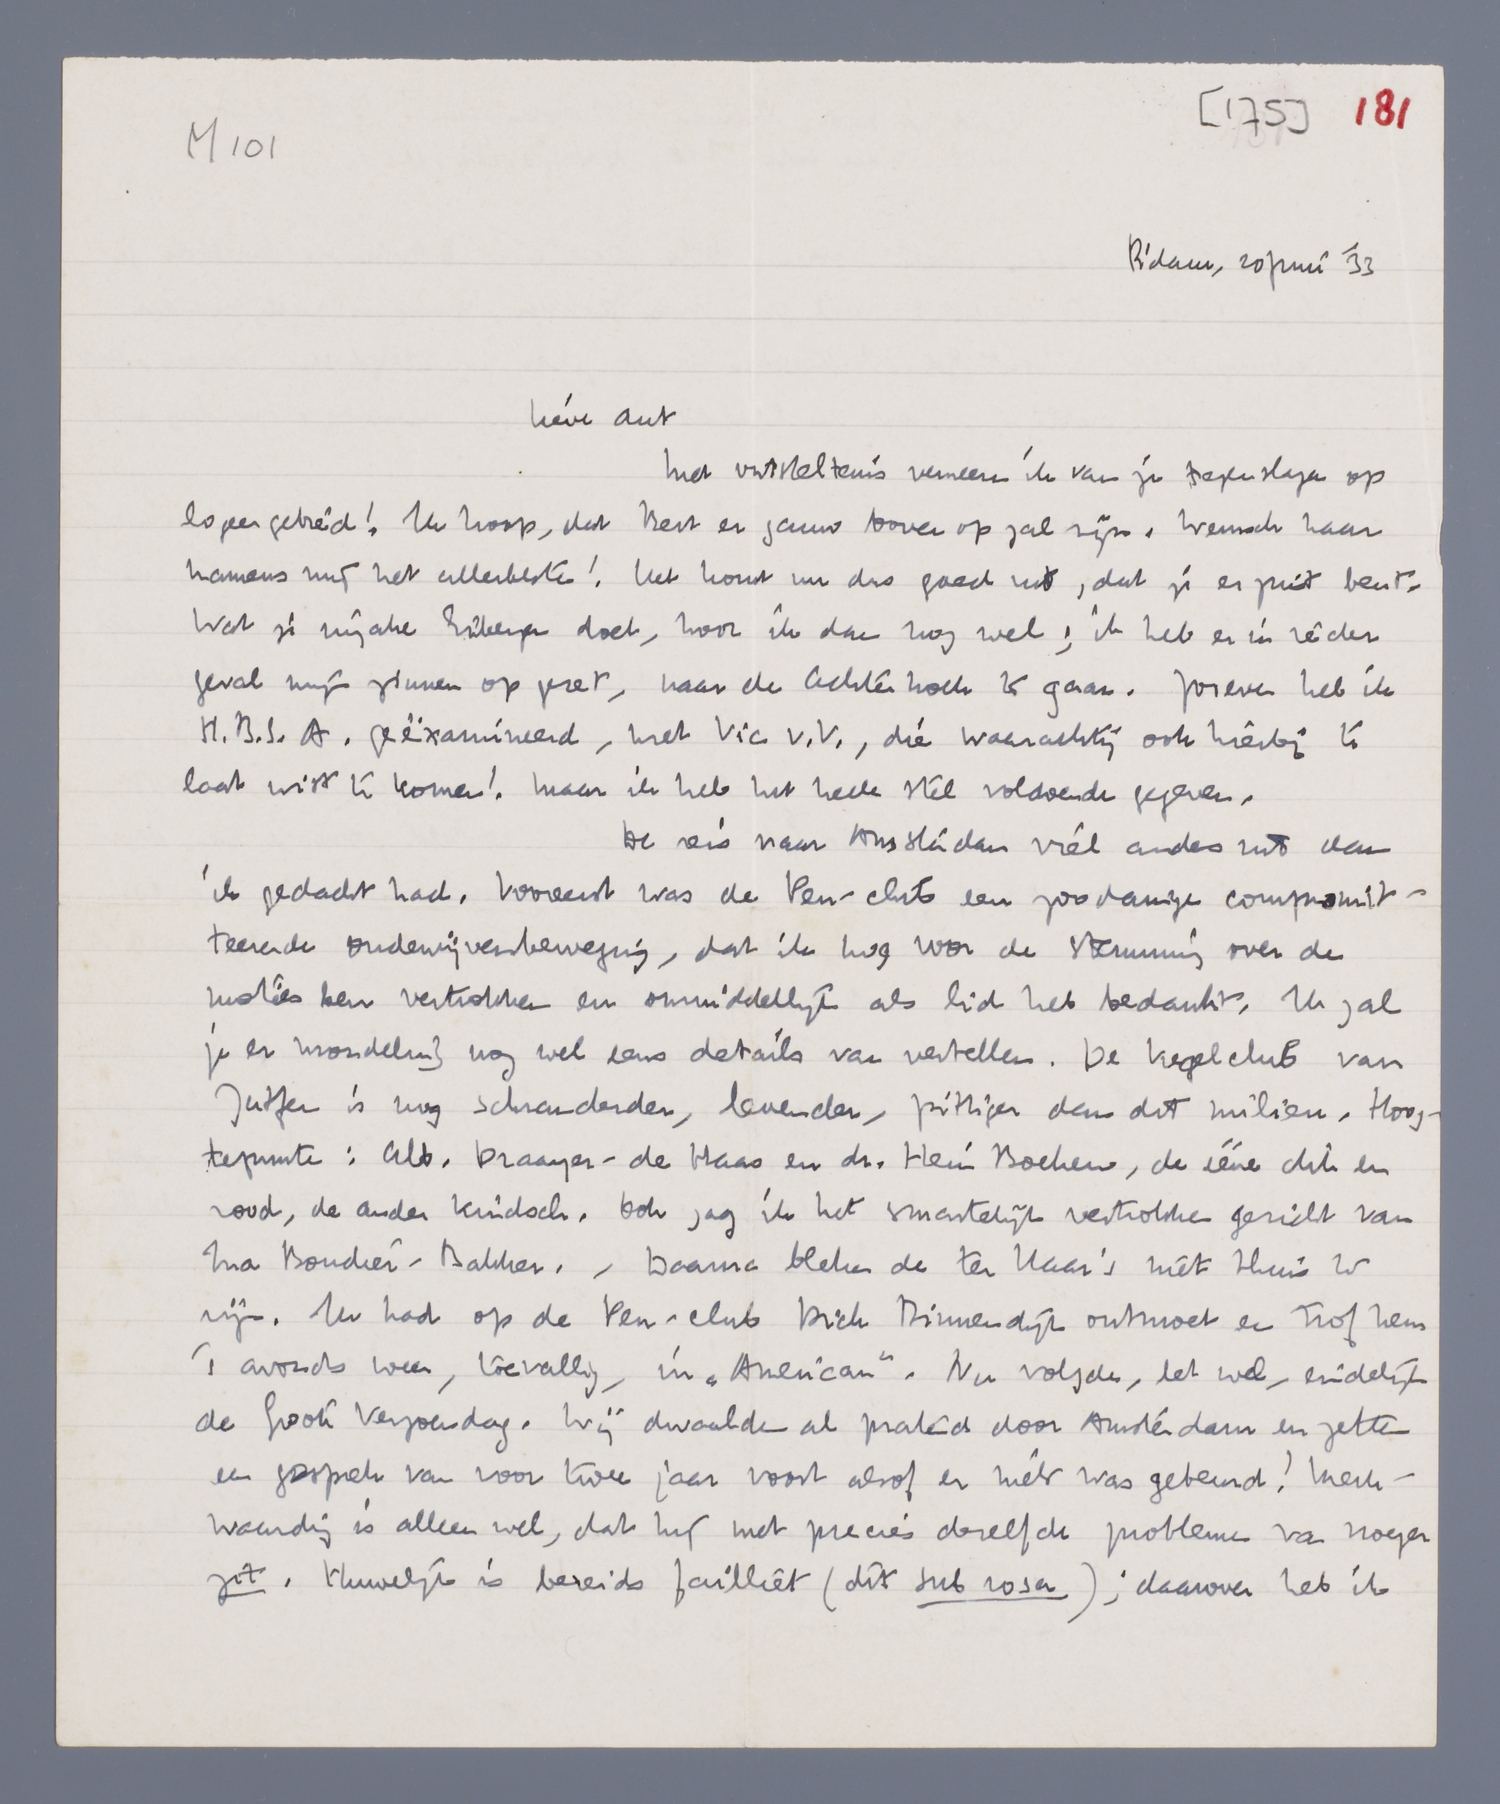 [175] 181
M 101
R'dam, 20 Juni '33
Lieve Ant
Met ontsteltenis verneem ik van je tegenslagen op
logeergebied! Ik hoop, dat Bert er gauw boven op zal zijn. Wensch haar
namens mij het allerbeste! Het komt nu dus goed uit, dat je er juist bent.
Wat je inzake Eibergen doet, hoor ik dan nog wel; ik heb er in ieder
geval mijn zinnen op gezet, naar de Achterhoek te gaan. Zoseven heb ik
H.B.S. A. geëxamineerd, met Vic v.V., die waarachtig ook hierbij te
laat wist te komen! Maar ik heb het heele stel voldoende gegeven.
De reis naar Amsterdam viel anders uit dan
ik gedacht had. Vooreerst was de Pen-club een zoodanige compromit-
teerende oudewijvenbeweging, dat ik nog voor de stemming over de
moties ben vertrokken en onmiddellijk als lid heb bedankt. Ik zal
je er mondeling nog wel eens details van vertellen. De kegelclub van
Zutfen is nog schranderder, levender, pittiger dan dit milieu. Hoog-
tepunten: Alb. Draayer-de Haas en dr. Hein Boeken, de ééne dik en
rood, de ander kindsch. Ook zag ik het smartelijk vertrokken gezicht van
Ina Boudier-Bakker. - Daarna bleken de ter Haar's niet thuis te
zijn. Ik had op de Pen-club Dick Binnendijk ontmoet en trof hem
's avonds weer, toevallig, in „American". Nu volgde, let wel, eindelijk
de Groote Verzoendag. Wij dwaalden al pratend door Amsterdam en zetten
een gesprek van voor twee jaar voort alsof er niets was gebeurd! Merk-
waardig is alleen wel, dat hij met precies dezelfde problemen van vroeger
zit. Huwelijk is bereids failliet (dit sub rosa); daarover heb ik